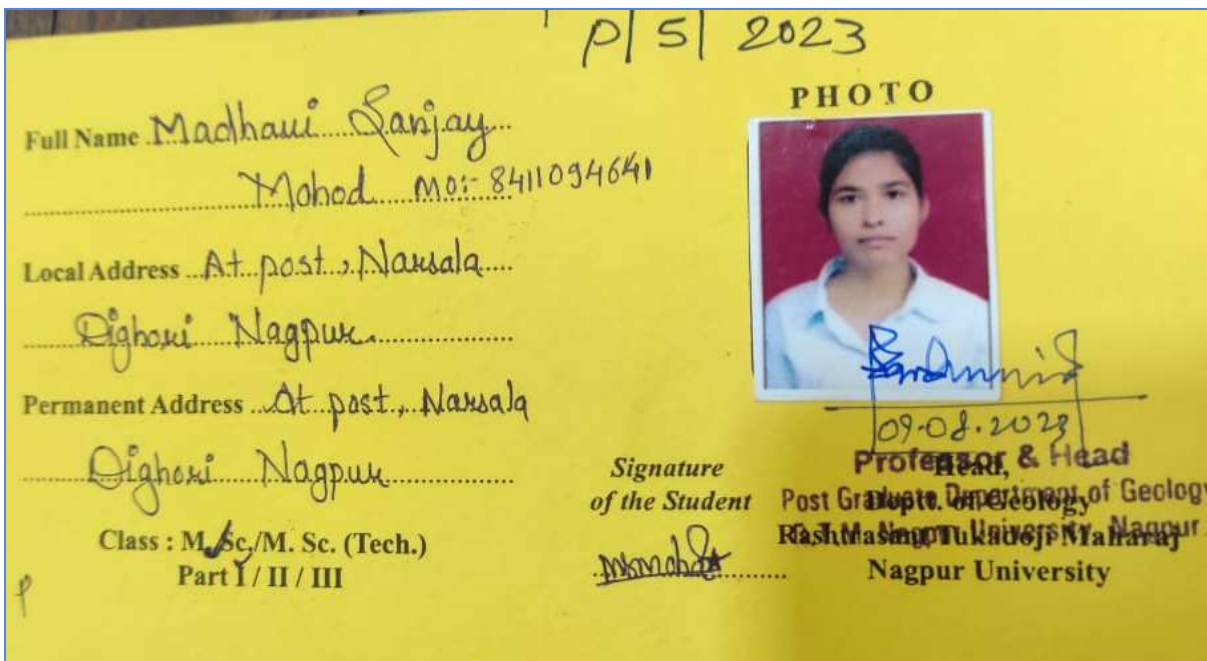 P/ 5/ 2023
PHOTO
Full Name Madhavi Sanjay
Mohod MO:- 8411094641
Local Address At post, Narsala
Dighori Nagpur.
Permanent Address At post, Narsala
Dighori Nagpur
Class : M. Sc./M. Sc. (Tech.)
Part I / II / III
Signature
of the Student
09.08.2023
Professor & Head
Head,
Post Graduate Department of Geology
Deptt. of Geology
R. T. M. Nagpur University, Nagpur
Rashtrasant Tukadoji Maharaj
Nagpur University
P